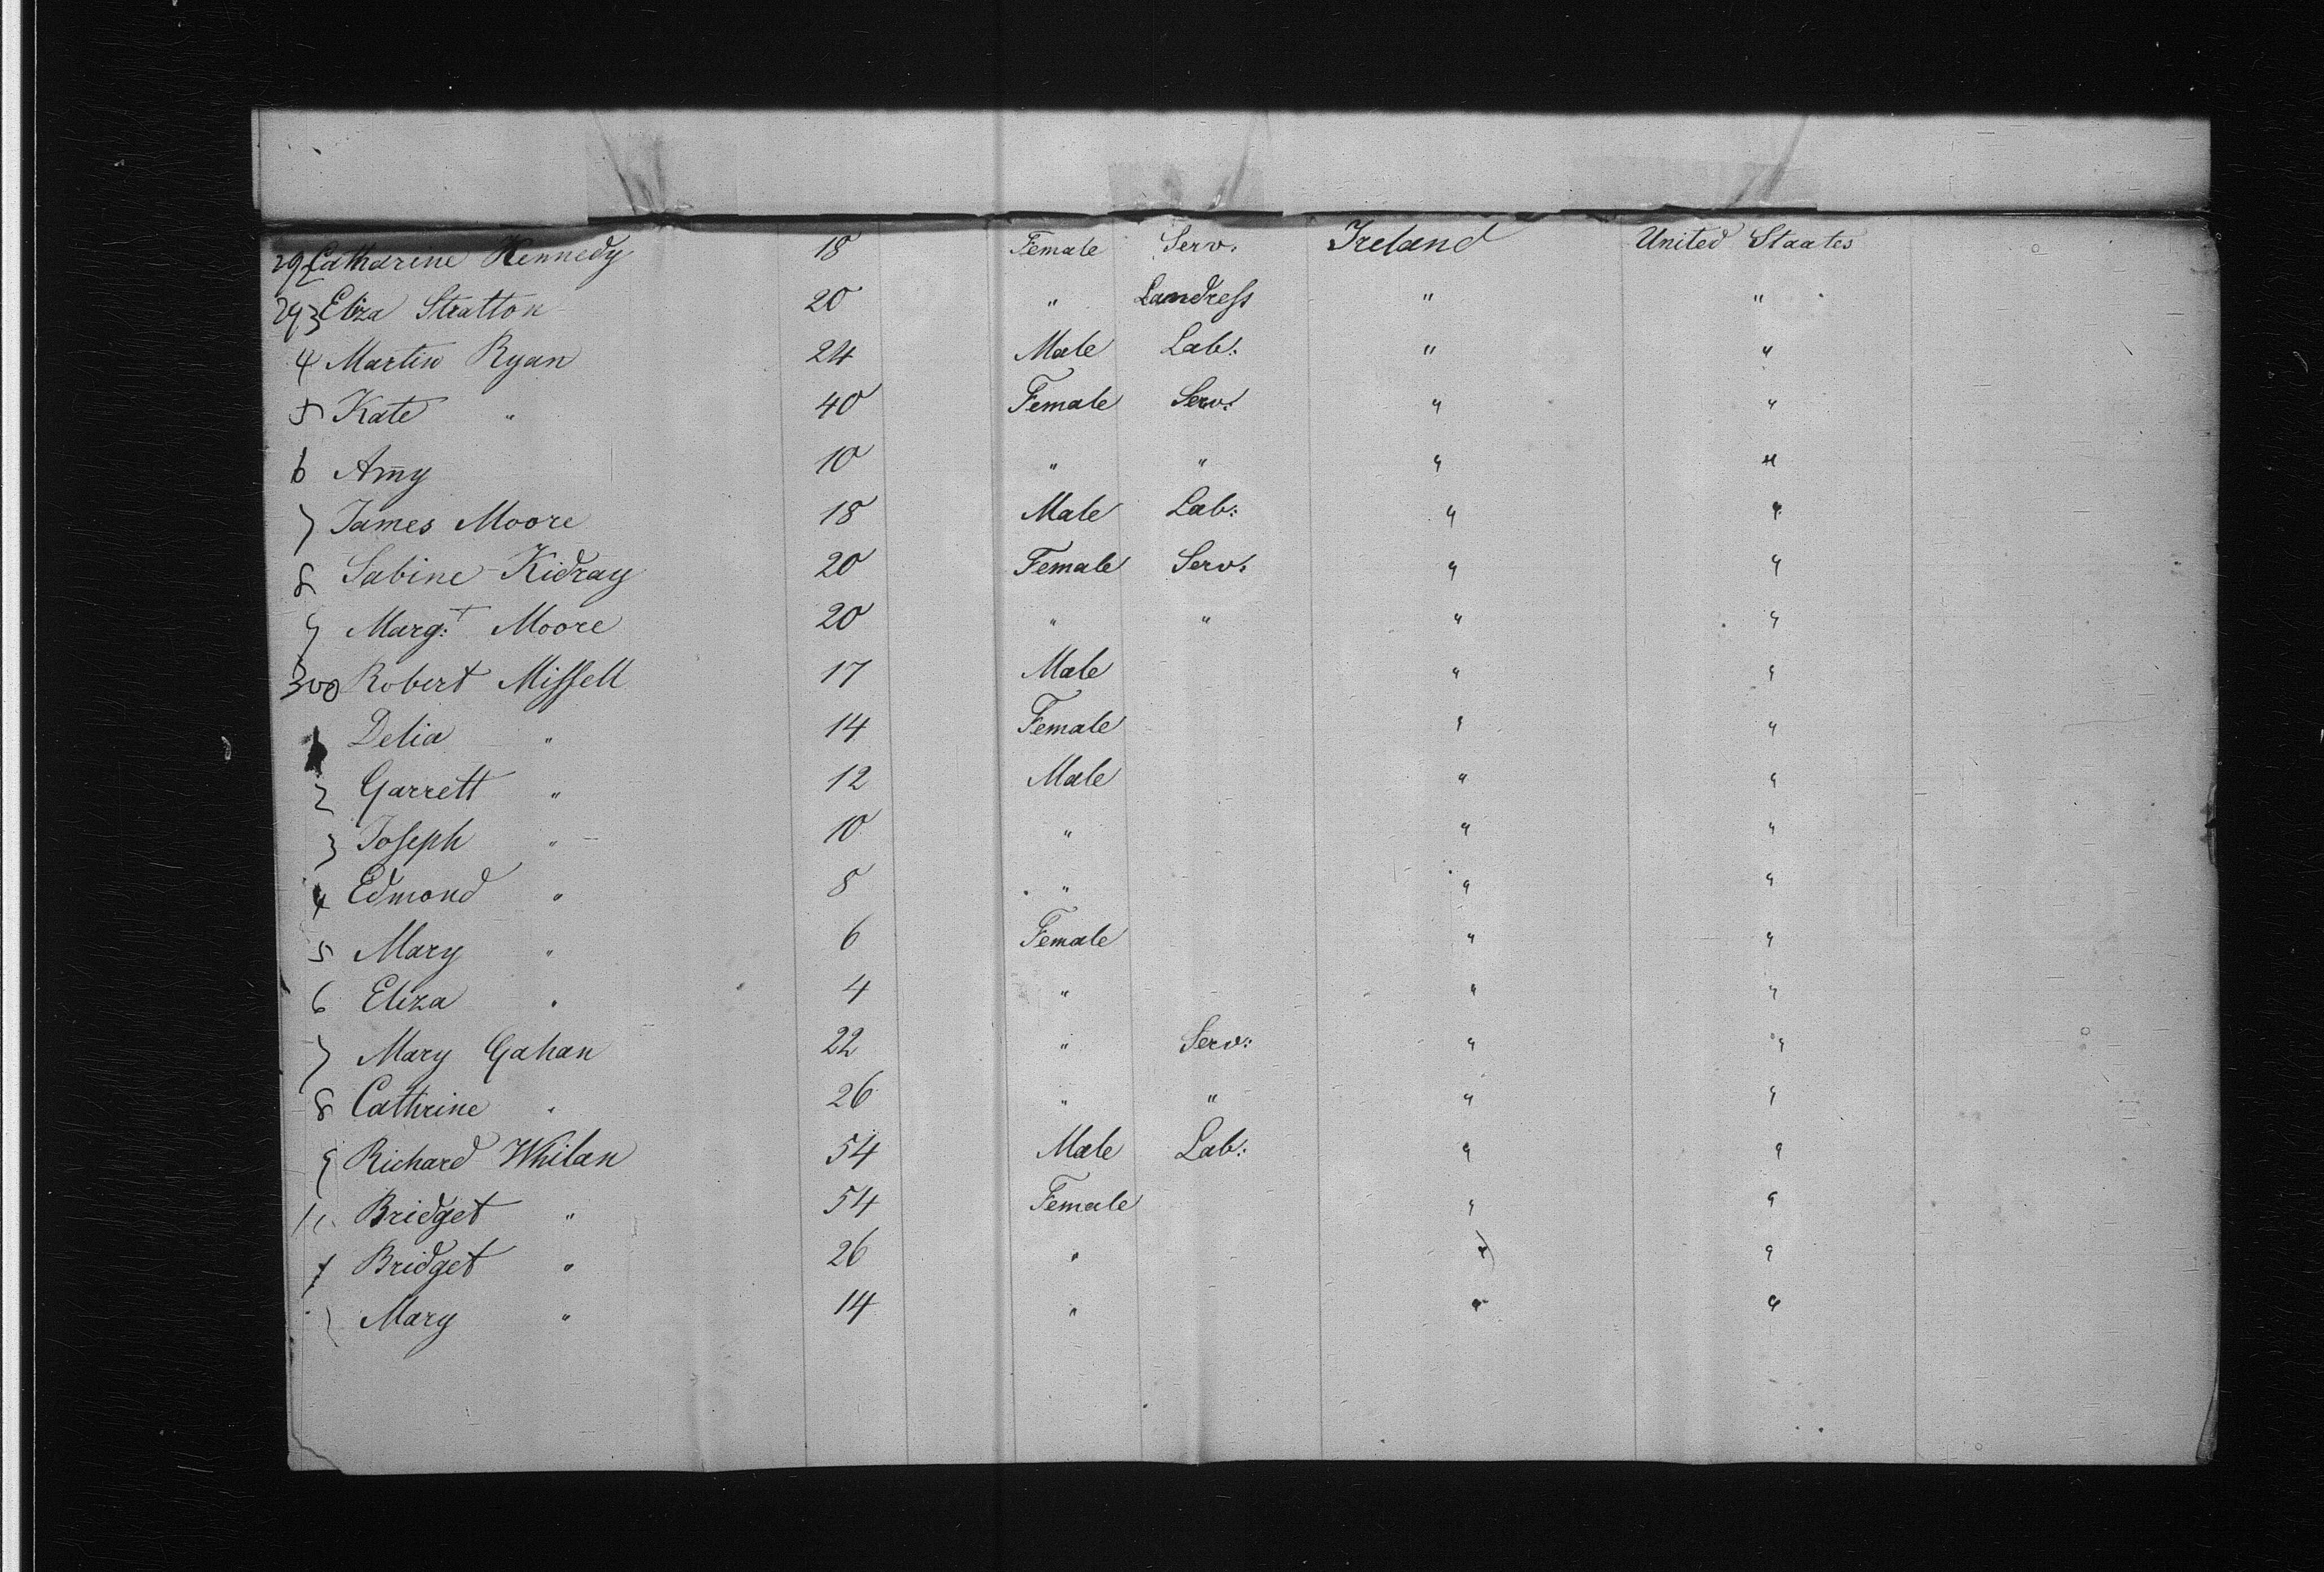 292 Catharine Kennedy 18 Female Serv. Ireland United Staates
293 Eliza Stratton 20 " Landress " "
4 Martin Ryan 24 Male Lab: " "
5 Kate " 40 Female Serv: " "
6 Amy 10 " " " "
7 James Moore 18 Male Lab: " "
8 Sabine Kidray 20 Female Serv: " "
9 Marg:t Moore 20 " " " "
300 Robert Missell 17 Male " "
1 Delia " 14 Female " "
2 Garrett " 12 Male " "
3 Joseph " 10 " " "
4 Edmond " 8 " " "
5 Mary " 6 Female " "
6 Eliza " 4 " " "
7 Mary Gahan 22 " Serv: " "
8 Cathrine " 26 " " " "
9 Richard Whilan 54 Male Lab: " "
Bridget " 54 Female " "
1 Bridget " 26 " " "
Mary " 14 " " "